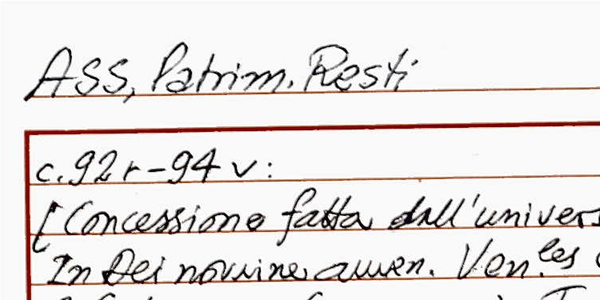 Ass, Patrim. Resti
c.92r-94v:
[Concessione fatta dall'univers
In Dei nomine amen. Ven.les